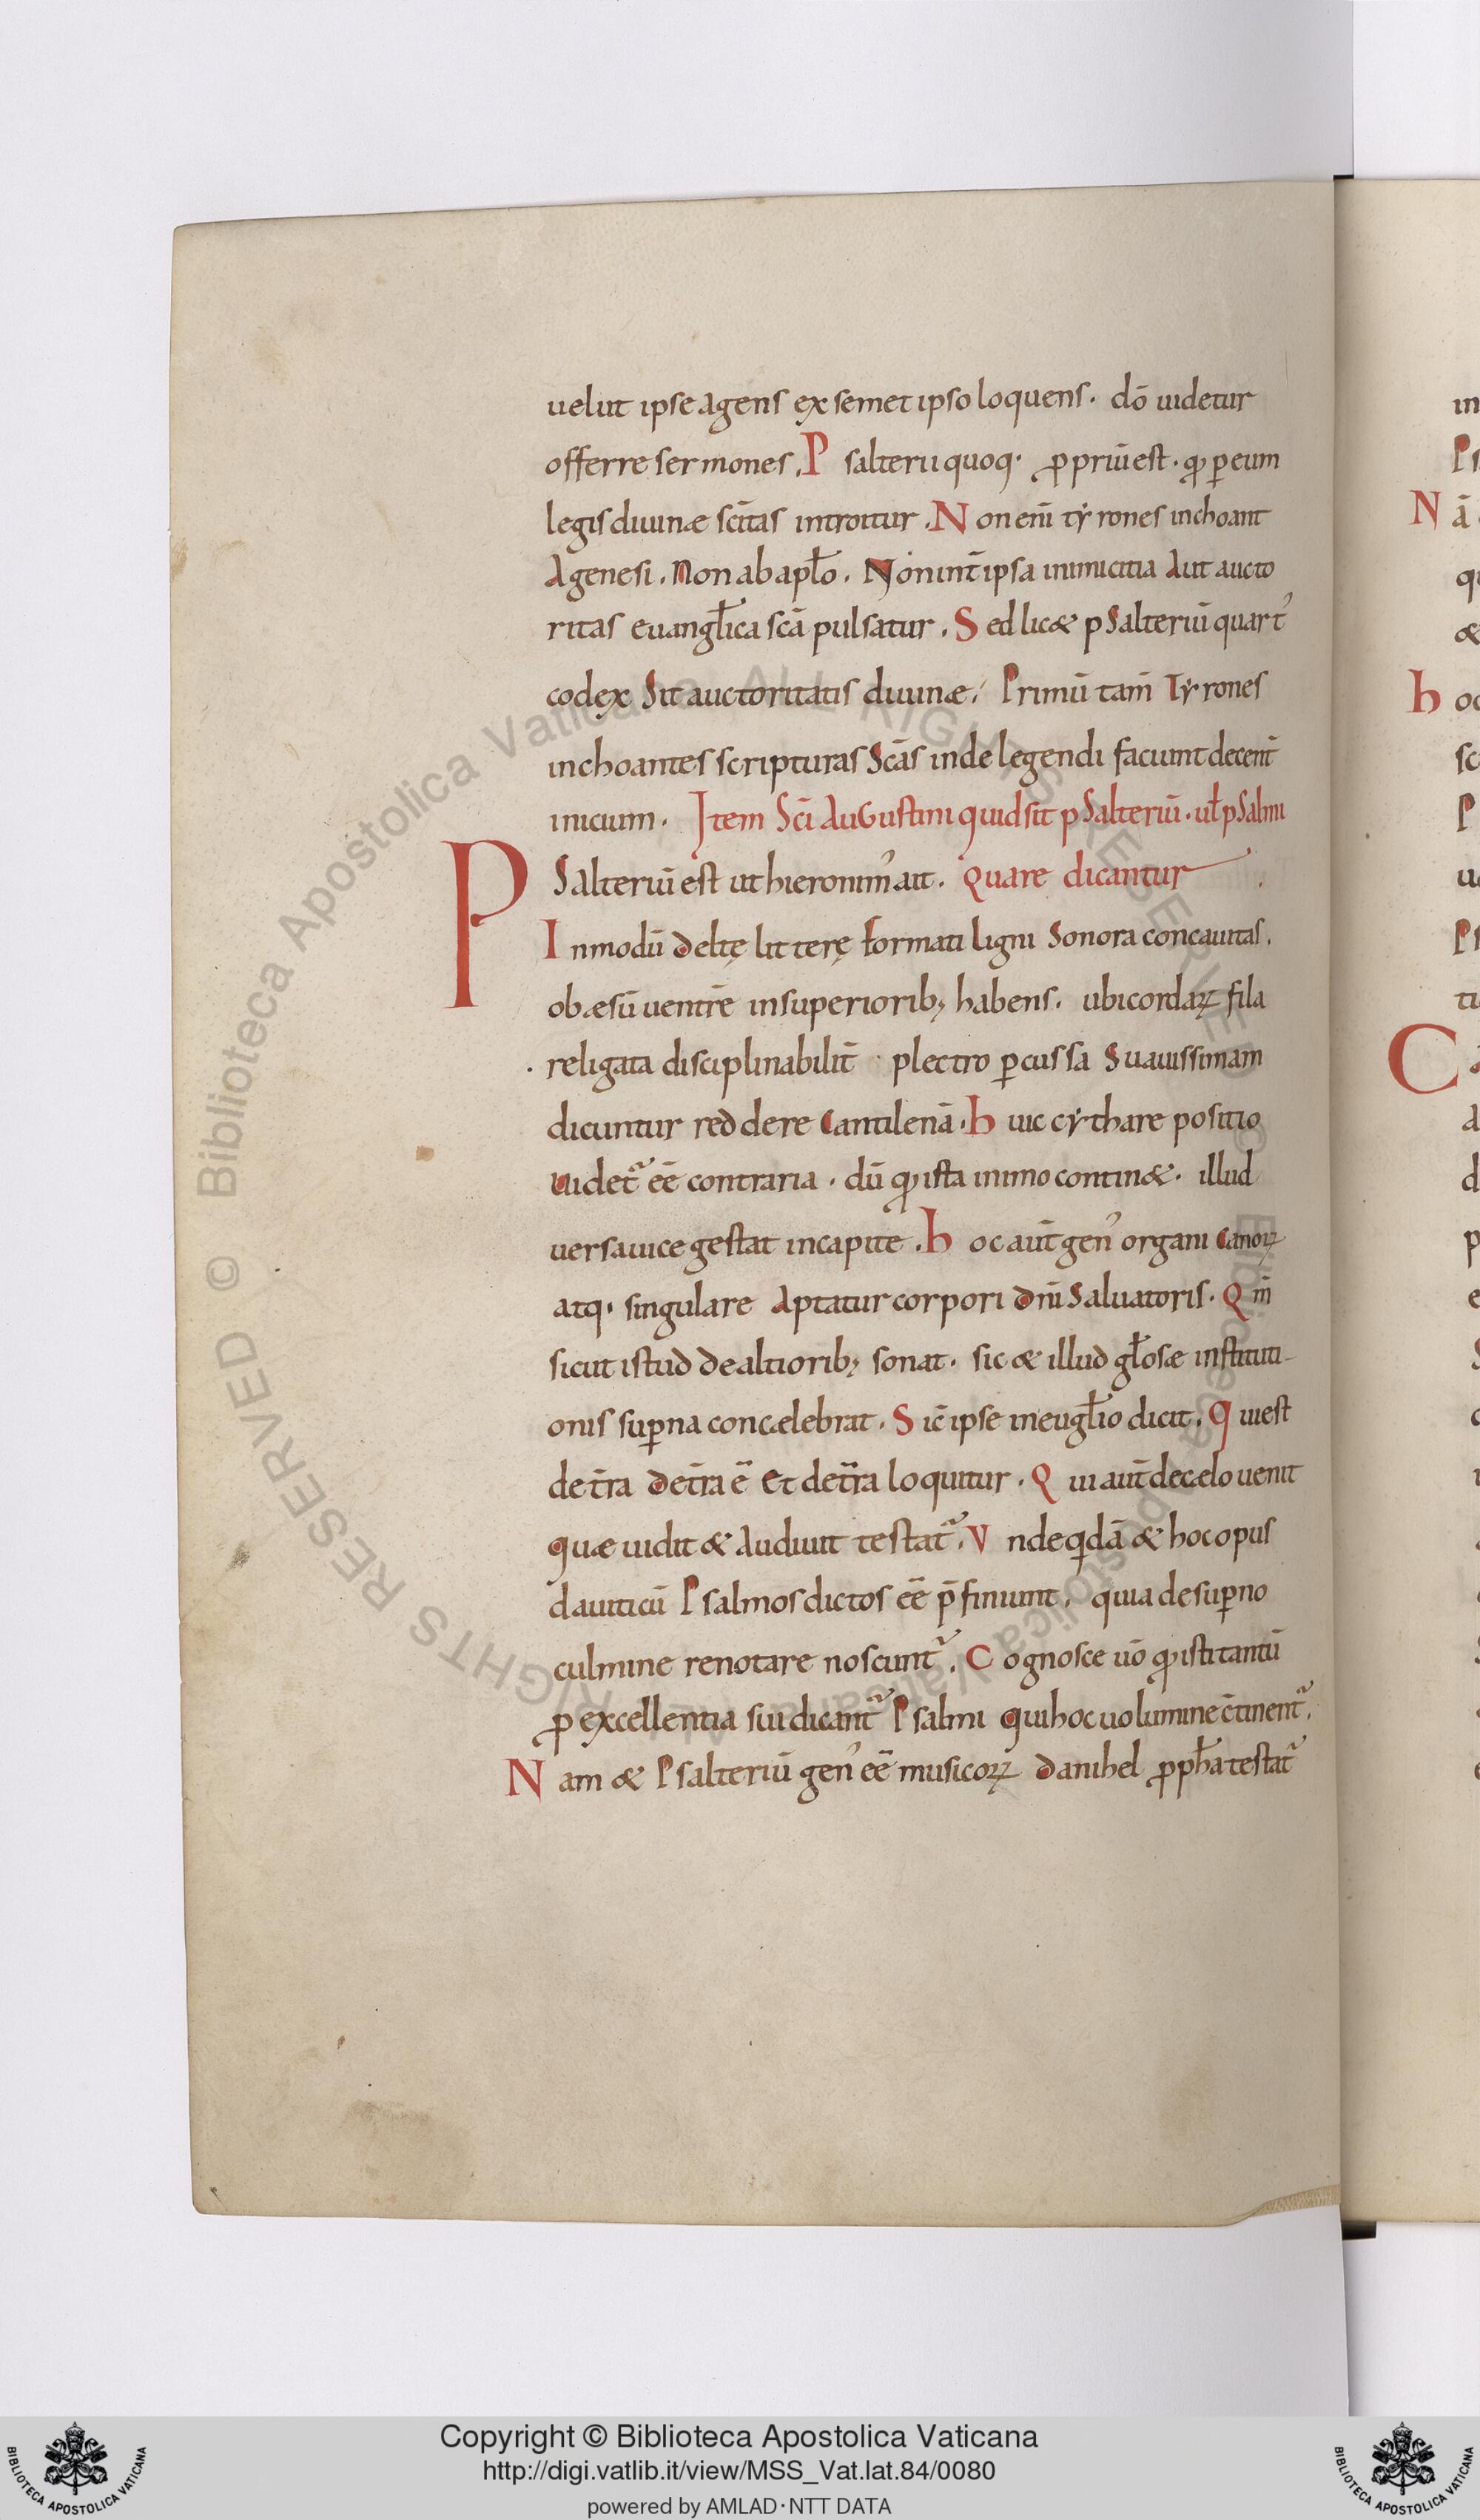 uelut ipse agens ex semet ipso loquens. dō uidetur
offerre sermones. Psalterii quoq· ꝓpriū est. ꝙ ꝑ eum
legis diuinæ scītas introitur. Non enī tẏrones inchoant
A genesi. Non ab apł̄o. Nonint̄ ipsa inimicitia Aut aucto
ritas euangł̄ica scā pulsatur. Sed lic& pSalteriū quart᾽
codex Sit auctoritatis diuinæ. Primū tam̄ Tẏrones
inchoantes scripturas Scās inde legendi faciunt decent̄
inicium. Item Sc̄i AuGustini quid sit pSalteriū. uł pSalmi
PSalteriū est ut hieronim᾽ ait. Quare dicantur
In modū deltę litterę formati ligni Sonora concauitas.
obæsū uentrē in superiorib; habens. ubi cordaꝝ fila
religata disciplinabilit̄ plectro ꝑcussa Suauissimam
dicuntur reddere Cantilenā. huic cẏthare positio
uidet᷑ eē contraria. dū ꝙ ista in imo contin&. illud
uersa uice gestat in capite. hoc aut̄ gen᾽ organi Canoꝝ
atq· singulare Aptatur corpori dn̄i Saluatoris. Qm̄
sicut istud de altiorib; sonat. sic & illud gł̄osæ instituti-
onis suꝑna concælebrat. Sic̄ ipse in eugł̄io dicit. Qui est
de t̄ra de t̄ra ē Et de t̄ra loquitur. Qui aut̄ de cælo uenit
quæ uidit & Audiuit testat᷑. Vnde q̇dā & hoc opus
dauiticū Psalmos dictos eē p̄finiunt. quia de suꝑno
culmine renotare noscunt᷑. Cognosce uō ꝙ isti tantū
ꝓ excellentia sui dicant᷑ Psalmi qui hoc uolumine c̄tinent᷑.
Nam & Psalteriū gen᾽ eē musicoꝝ danihel ꝓph̄a testat᷑
in
Ps
Nā
qu
&
hoc
sc
P
ua
Ps
ti
C
d
p
e
© Biblioteca Apostolica Vaticana ALL RIGHTS RESERVED © Biblioteca Apostolica Vaticana ALL RIGHTS RESERVED
Copyright © Biblioteca Apostolica Vaticana
http://digi.vatlib.it/view/MSS_Vat.lat.84/0080
powered by AMLAD·NTT DATA
BIBLIOTECA APOSTOLICA VATICANA
BIBLIOTECA APOSTOLICA VATICANA